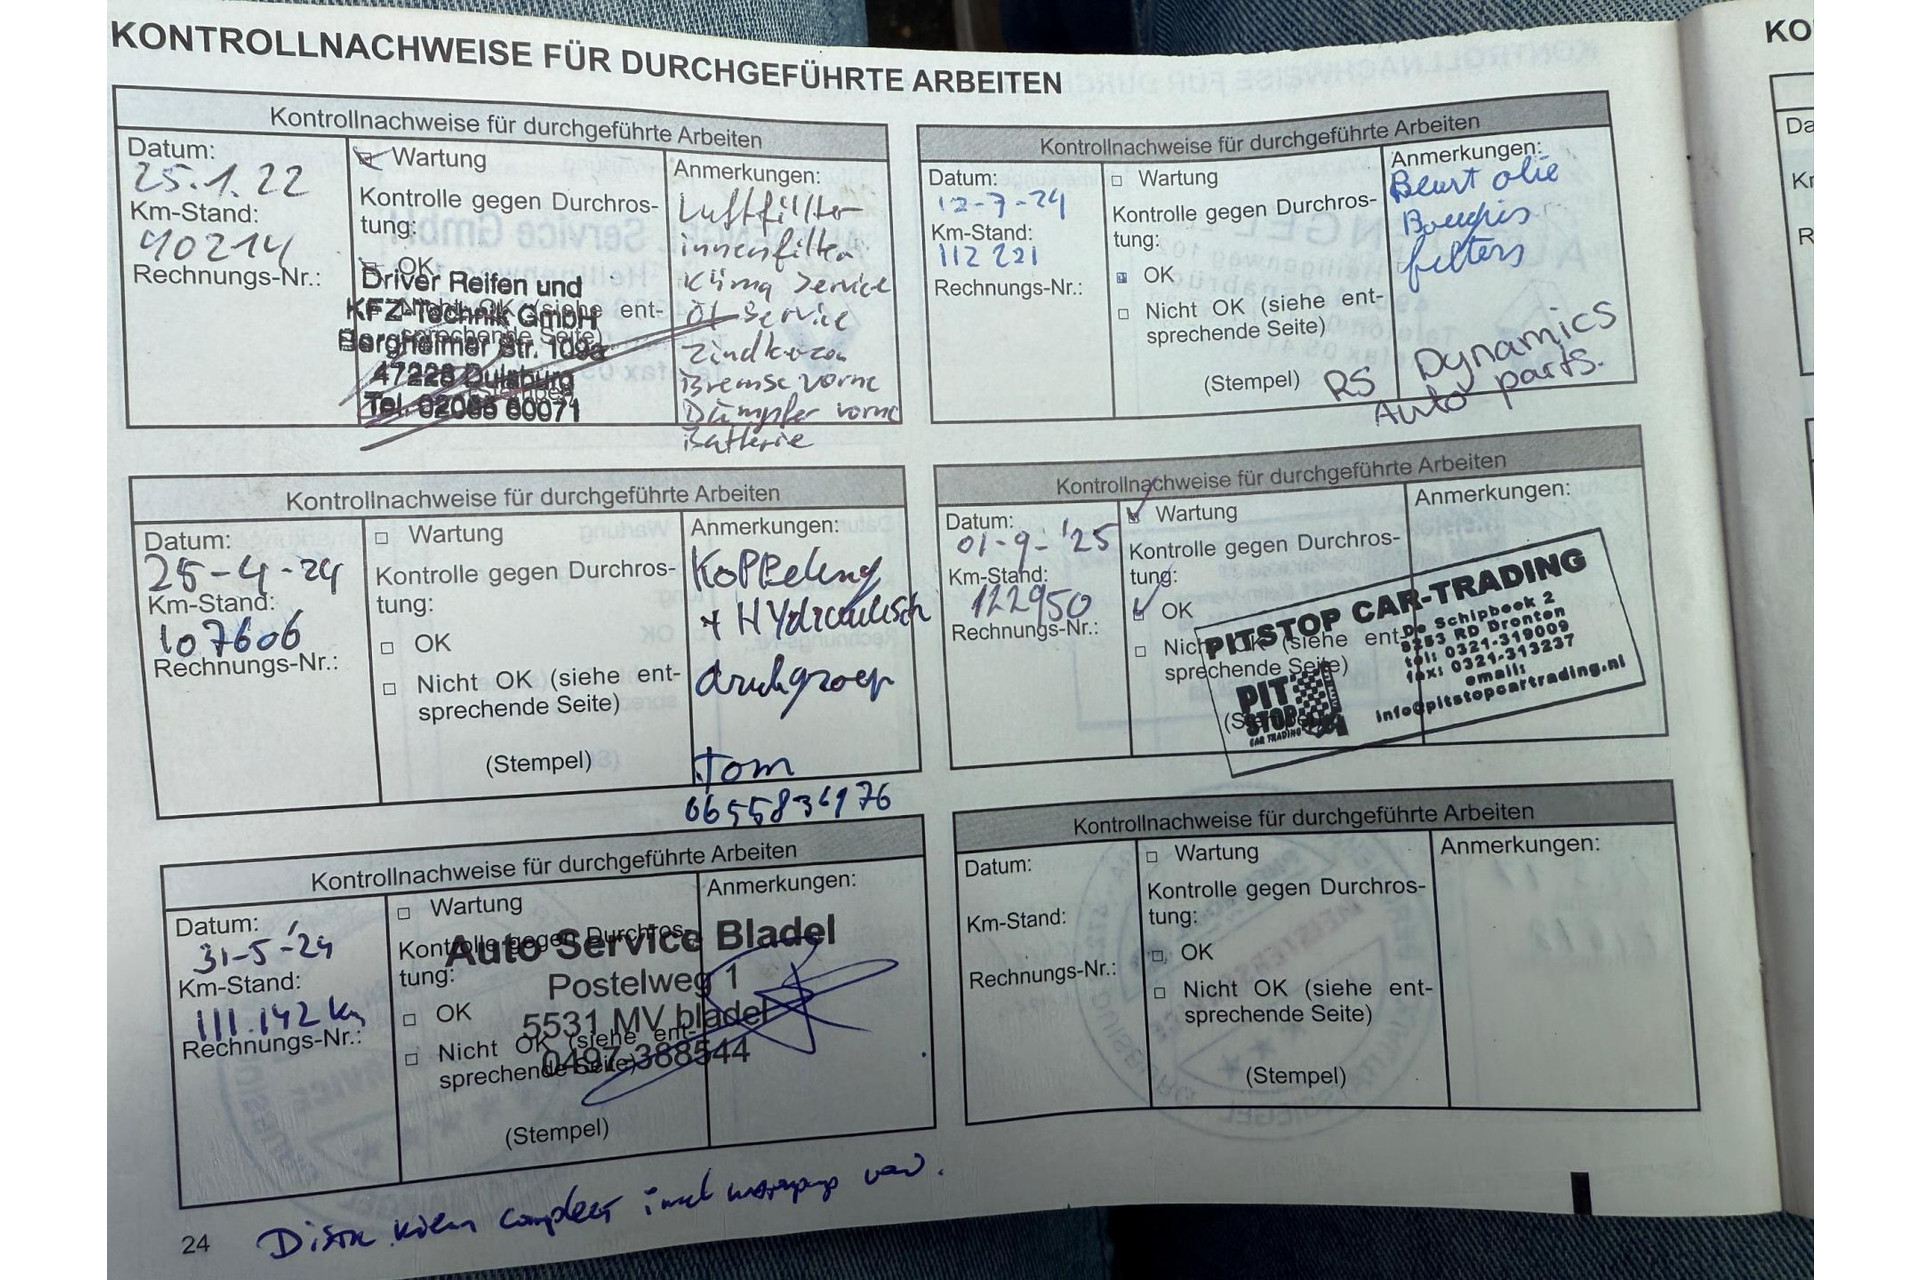 KONTROLLNACHWEISE FÜR DURCHGEFÜHRTE ARBEITEN
KO
Kontrollnachweise für durchgeführte Arbeiten
Datum:
25.1.22
Km-Stand:
90214
Rechnungs-Nr.:
Wartung
Kontrolle gegen Durchros-
tung:
OK
Nicht OK (siehe ent-
sprechende Seite)
Driver Reifen und
KFZ-Technik GmbH
Bergheimer Str. 109a
47228 Duisburg
Tel. 02065 60071
Anmerkungen:
Luftfillter
innenfilter
Klima Service
Öl Service
Zindkerzen
Bremse vorne
Dämpfer vorne
Batterie
Kontrollnachweise für durchgeführte Arbeiten
Datum:
12-7-24
Km-Stand:
112 221
Rechnungs-Nr.:
Wartung
Kontrolle gegen Durchros-
tung:
OK
Nicht OK (siehe ent-
sprechende Seite)
(Stempel)
Anmerkungen:
Beurt olie
Bougies
filters
RS Dynamics
Auto parts.
Kontrollnachweise für durchgeführte Arbeiten
Datum:
25-4-24
Km-Stand:
107606
Rechnungs-Nr.:
Wartung
Kontrolle gegen Durchros-
tung:
OK
Nicht OK (siehe ent-
sprechende Seite)
(Stempel)
Anmerkungen:
Koppeling
+ Hydraulisch
drukgroep
Tom
0655836976
Kontrollnachweise für durchgeführte Arbeiten
Datum:
01-9-'25
Km-Stand:
122950
Rechnungs-Nr.:
Wartung
Kontrolle gegen Durchros-
tung:
OK
Nicht OK (siehe ent-
sprechende Seite)
Anmerkungen:
PITSTOP CAR-TRADING
De Schipbeek 2
8253 RD Dronten
tel: 0321-319009
fax: 0321-313237
email:
info@pitstopcartrading.nl
PIT
STOP
CAR TRADING
Kontrollnachweise für durchgeführte Arbeiten
Datum:
31-5-'24
Km-Stand:
111.142 km
Rechnungs-Nr.:
Wartung
Kontrolle gegen Durchros-
tung:
OK
Nicht OK (siehe ent-
sprechende Seite)
(Stempel)
Anmerkungen:
Auto Service Bladel
Postelweg 1
5531 MV bladel
0497-388544
Kontrollnachweise für durchgeführte Arbeiten
Datum:
Km-Stand:
Rechnungs-Nr.:
Wartung
Kontrolle gegen Durchros-
tung:
OK
Nicht OK (siehe ent-
sprechende Seite)
(Stempel)
Anmerkungen:
24
compleet